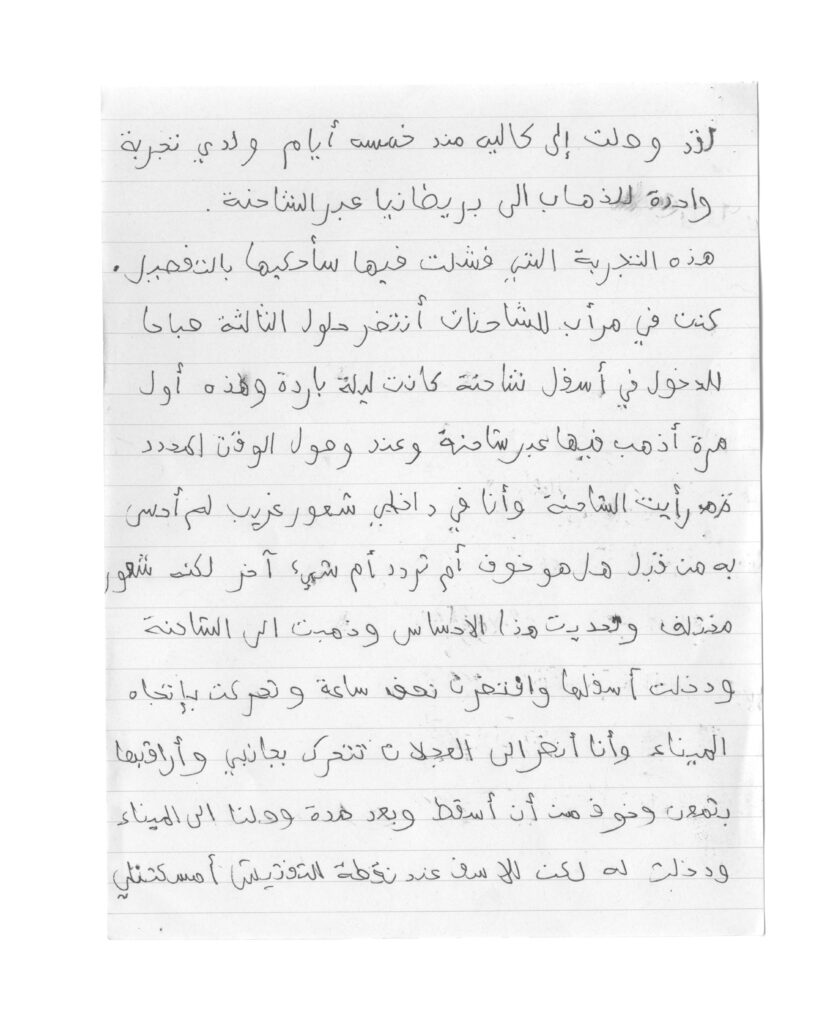 لقد وصلت إلى كاليه منذ خمسه أيام ولدي تجربة
واحدة للذهاب الى بريطانيا عبر الشاحنة .
هذه التجربة التي فشلت فيها سأحكيها بالتفصيل .
كنت في مرأب للشاحنات أنتضر حلول الثالثة صباحا
للدخول في أسفل شاحنة كانت ليلة باردة وهذه أول
مرة أذهب فيها عبر شاحنة وعند وصول الوقت المحدد
رأيت الشاحنة وأنا في داخلي شعور غريب لم أحس
به من قبل هل هو خوف أم تردد أم شيء آخر لكنه شعور
مختلف وتحديت هذا الاحساس وذهبت الى الشاحنة
ودخلت أسفلها وانتضرت نصف ساعة وتحركت بإتجاه
الميناء وأنا أنضر الى العجلات تتحرك بجانبي وأراقبها
بتمعن وخوف من أن أسقط وبعد مدة وصلنا الى الميناء
ودخلت له لكن للاسف عند نقطة التفتيش أمسكتني